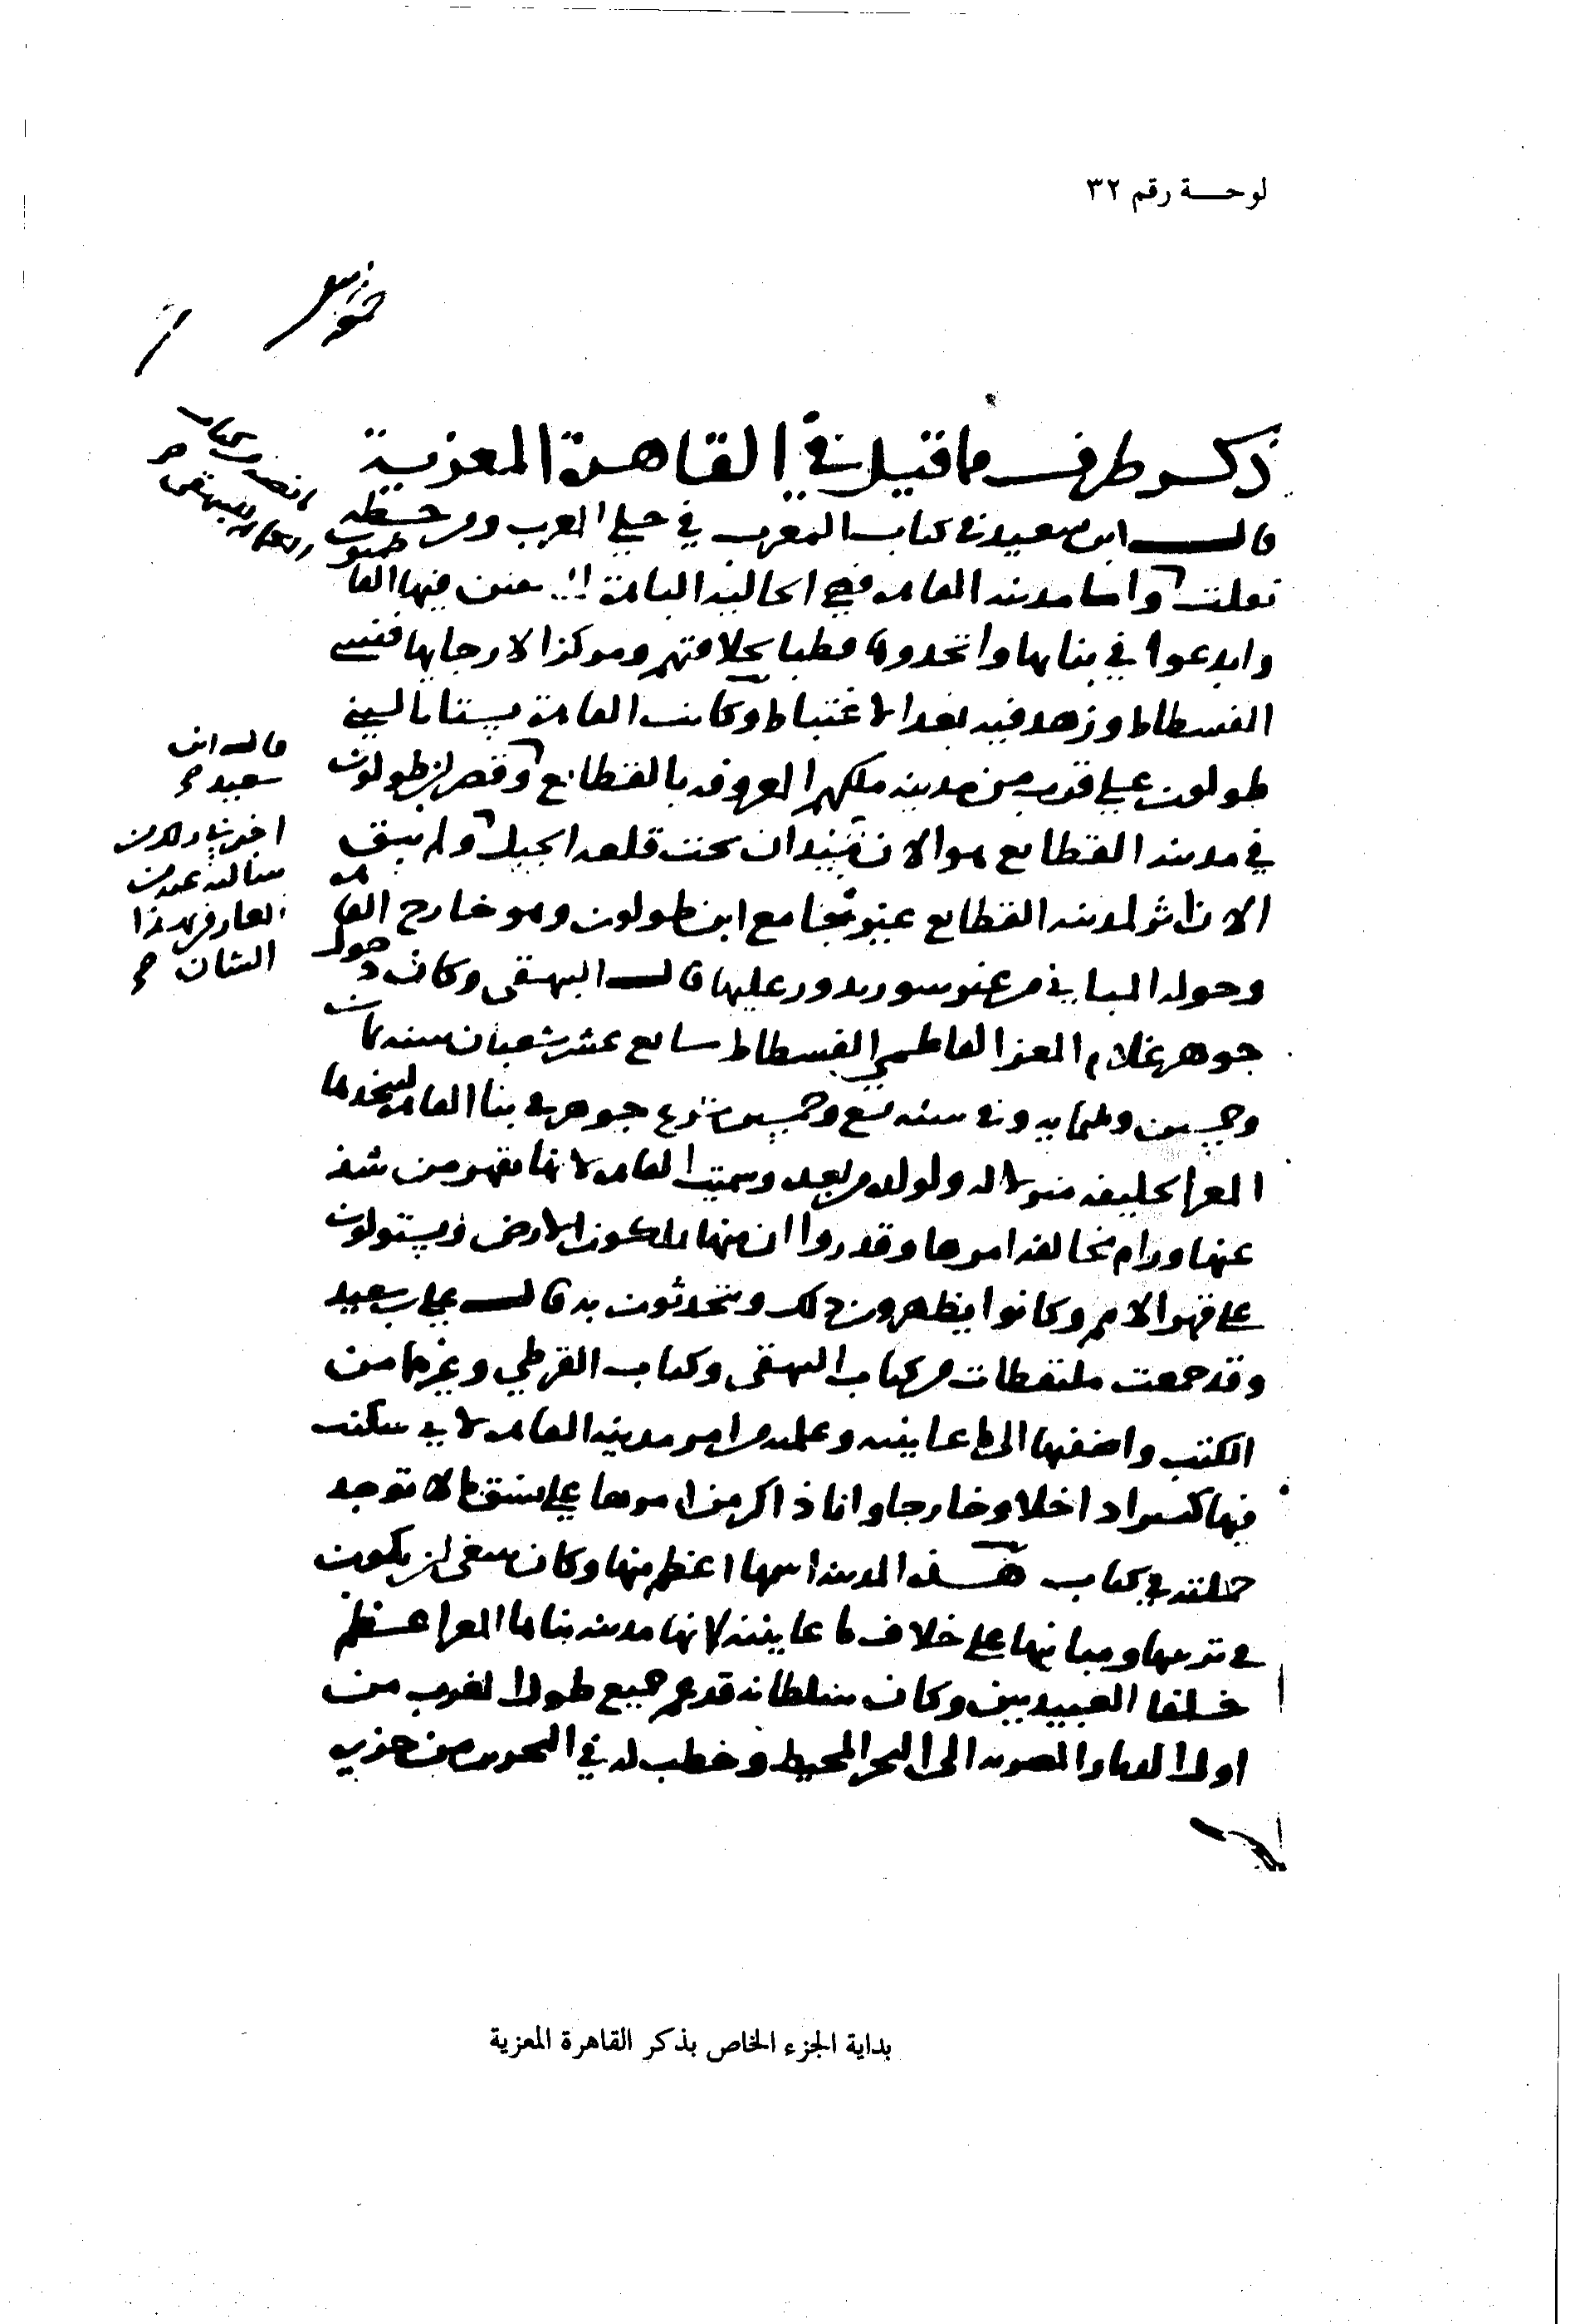 لوحة رقم ٣٢
ذكر طرف ما قيل في القاهرة المعزية
قال ابن سعيد في كتاب المغرب في حلي المغرب ومن خطه
نقلت واما مدينه القاهره فهي الحاليه الباهرة التي تفنن فيها الفا
طميون
وابدعوا في بنايها واتخذوها قطبا لخلافتهم ومركزا لارجايها فنسي
الفسطاط وزهد فيه بعد الاغتباط وكانت القاهرة بستانا لبني
طولون على قرب من مدينه ملكهم المعروفه بالقطايع وقصر ابن طولون
في مدينه القطايع هو الان ميدان تحت قلعه الجبل ولم يبق
الان اثر لمدينه القطايع غير جامع ابن طولون وهو خارج القا
هره
وحوله المباني من غير سور يدور عليها قال البيهقى وكان د
خول
جوهر غلام المعز الفاطمي الفسطاط سابع عشر شعبان سنه ثمان
وخمسين وثلثمايه وفي سنه تسع وخمسين شرع جوهر في بنا القاهره ليتخذها
المعز الخليفه منزلا له ولولده من بعده وسميت القاهره لانها تقهر من شذ
عنها ورام مخالفه اميرها وقدروا ان منها يملكون الارض ويستولون
على قهر الامم وكانوا يظهرون ذلك ويتحدثون به قال علي بن سعيد
وقد جمعت ملتقطات من كتاب البيهقى وكتاب القرطي وغيرهما من
الكتب واضفتها الى ما عاينته وعلمته من امر مدينه القاهره لاني سكنت
فيها كثيرا داخلا وخارجا وانا ذاكر من امرها على نسق ما لا توجد
جملته في كتاب هذه المدينه اسمها اعظم منها وكان ينبغى ان يكون
في ترتيبها ومبانيها على خلاف ما عاينته لانها مدينه بناها المعز اعظم
خلفا العبيديين وكان سلطانه قد عم جميع طول المغرب من
اول الديار المصريه الى البحر المحيط وخطب له في البحرين من جزيره
قال ابن
سعيد
العارف بهذا
الشان
بداية الجزء الخاص بذكر القاهرة المعزية